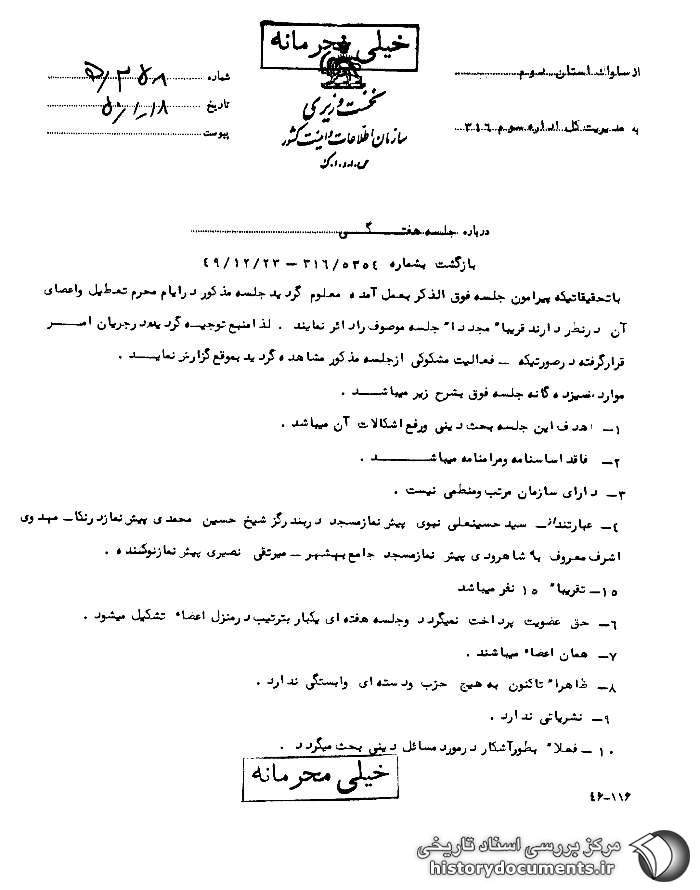 خیلی محرمانه
از ساواك استان سوم
شماره
به مدیریت کل اداره سوم ۳۱۶
تاریخ ۵۰/۱/۱۸
پیوست
نخست وزیری
سازمان اطلاعات و امنیت کشور
س.ا.و.ا.ک
درباره جلسه هفتگی
بازگشت بشماره ۳۱۶/۵۳۵۴ – ۴۹/۱۲/۲۳
باتحقیقاتیکه پیرامون جلسه فوق الذکر بعمل آمده معلوم گردید جلسه مذکور درایام محرم تعطیل واعضای
آن درنظر دارند قریباً مجدداً جلسه موصوف رادائر نمایند . لذا منبع توجیه گردیده درجریان امر
قرارگرفته درصورتیکه – فعالیت مشکوکی ازجلسه مذکور مشاهده گردید بموقع گزارش نماید .
موارد سیزده گانه جلسه فوق بشرح زیر میباشد .
۱– هدف این جلسه بحث دینی ورفع اشکالات آن میباشد .
۲– فاقد اساسنامه ومرامنامه میباشد .
۳– دارای سازمان مرتب ومنظمی نیست .
۴– عبارتنداز– سید حسینعلی نبوی پیش نمازمسجد دربندرگز شیخ حسین محمدی پیش نمازدرنکا– مهدوی
اشرف معروف به شاهرودی پیش نمازمسجد جامع بهشهر – میرتقی نصیری پیش نمازنوکنده .
۱۵– تقریباً ۱۵ نفر میباشد
۶– حق عضویت پرداخت نمیگردد وجلسه هفته ای یکبار بترتیب درمنزل اعضاء تشکیل میشود .
۷– همان اعضاء میباشند .
۸– ظاهراً تاکنون به هیچ حزب ودسته ای وابستگی ندارد .
۹– نشریاتی ندارد .
۱۰– فعلاً بطورآشکار درمورد مسائل دینی بحث میگردد .
خیلی محرمانه
۴۶–۱۱۶
مرکز بررسی اسناد تاریخی
historydocuments.ir